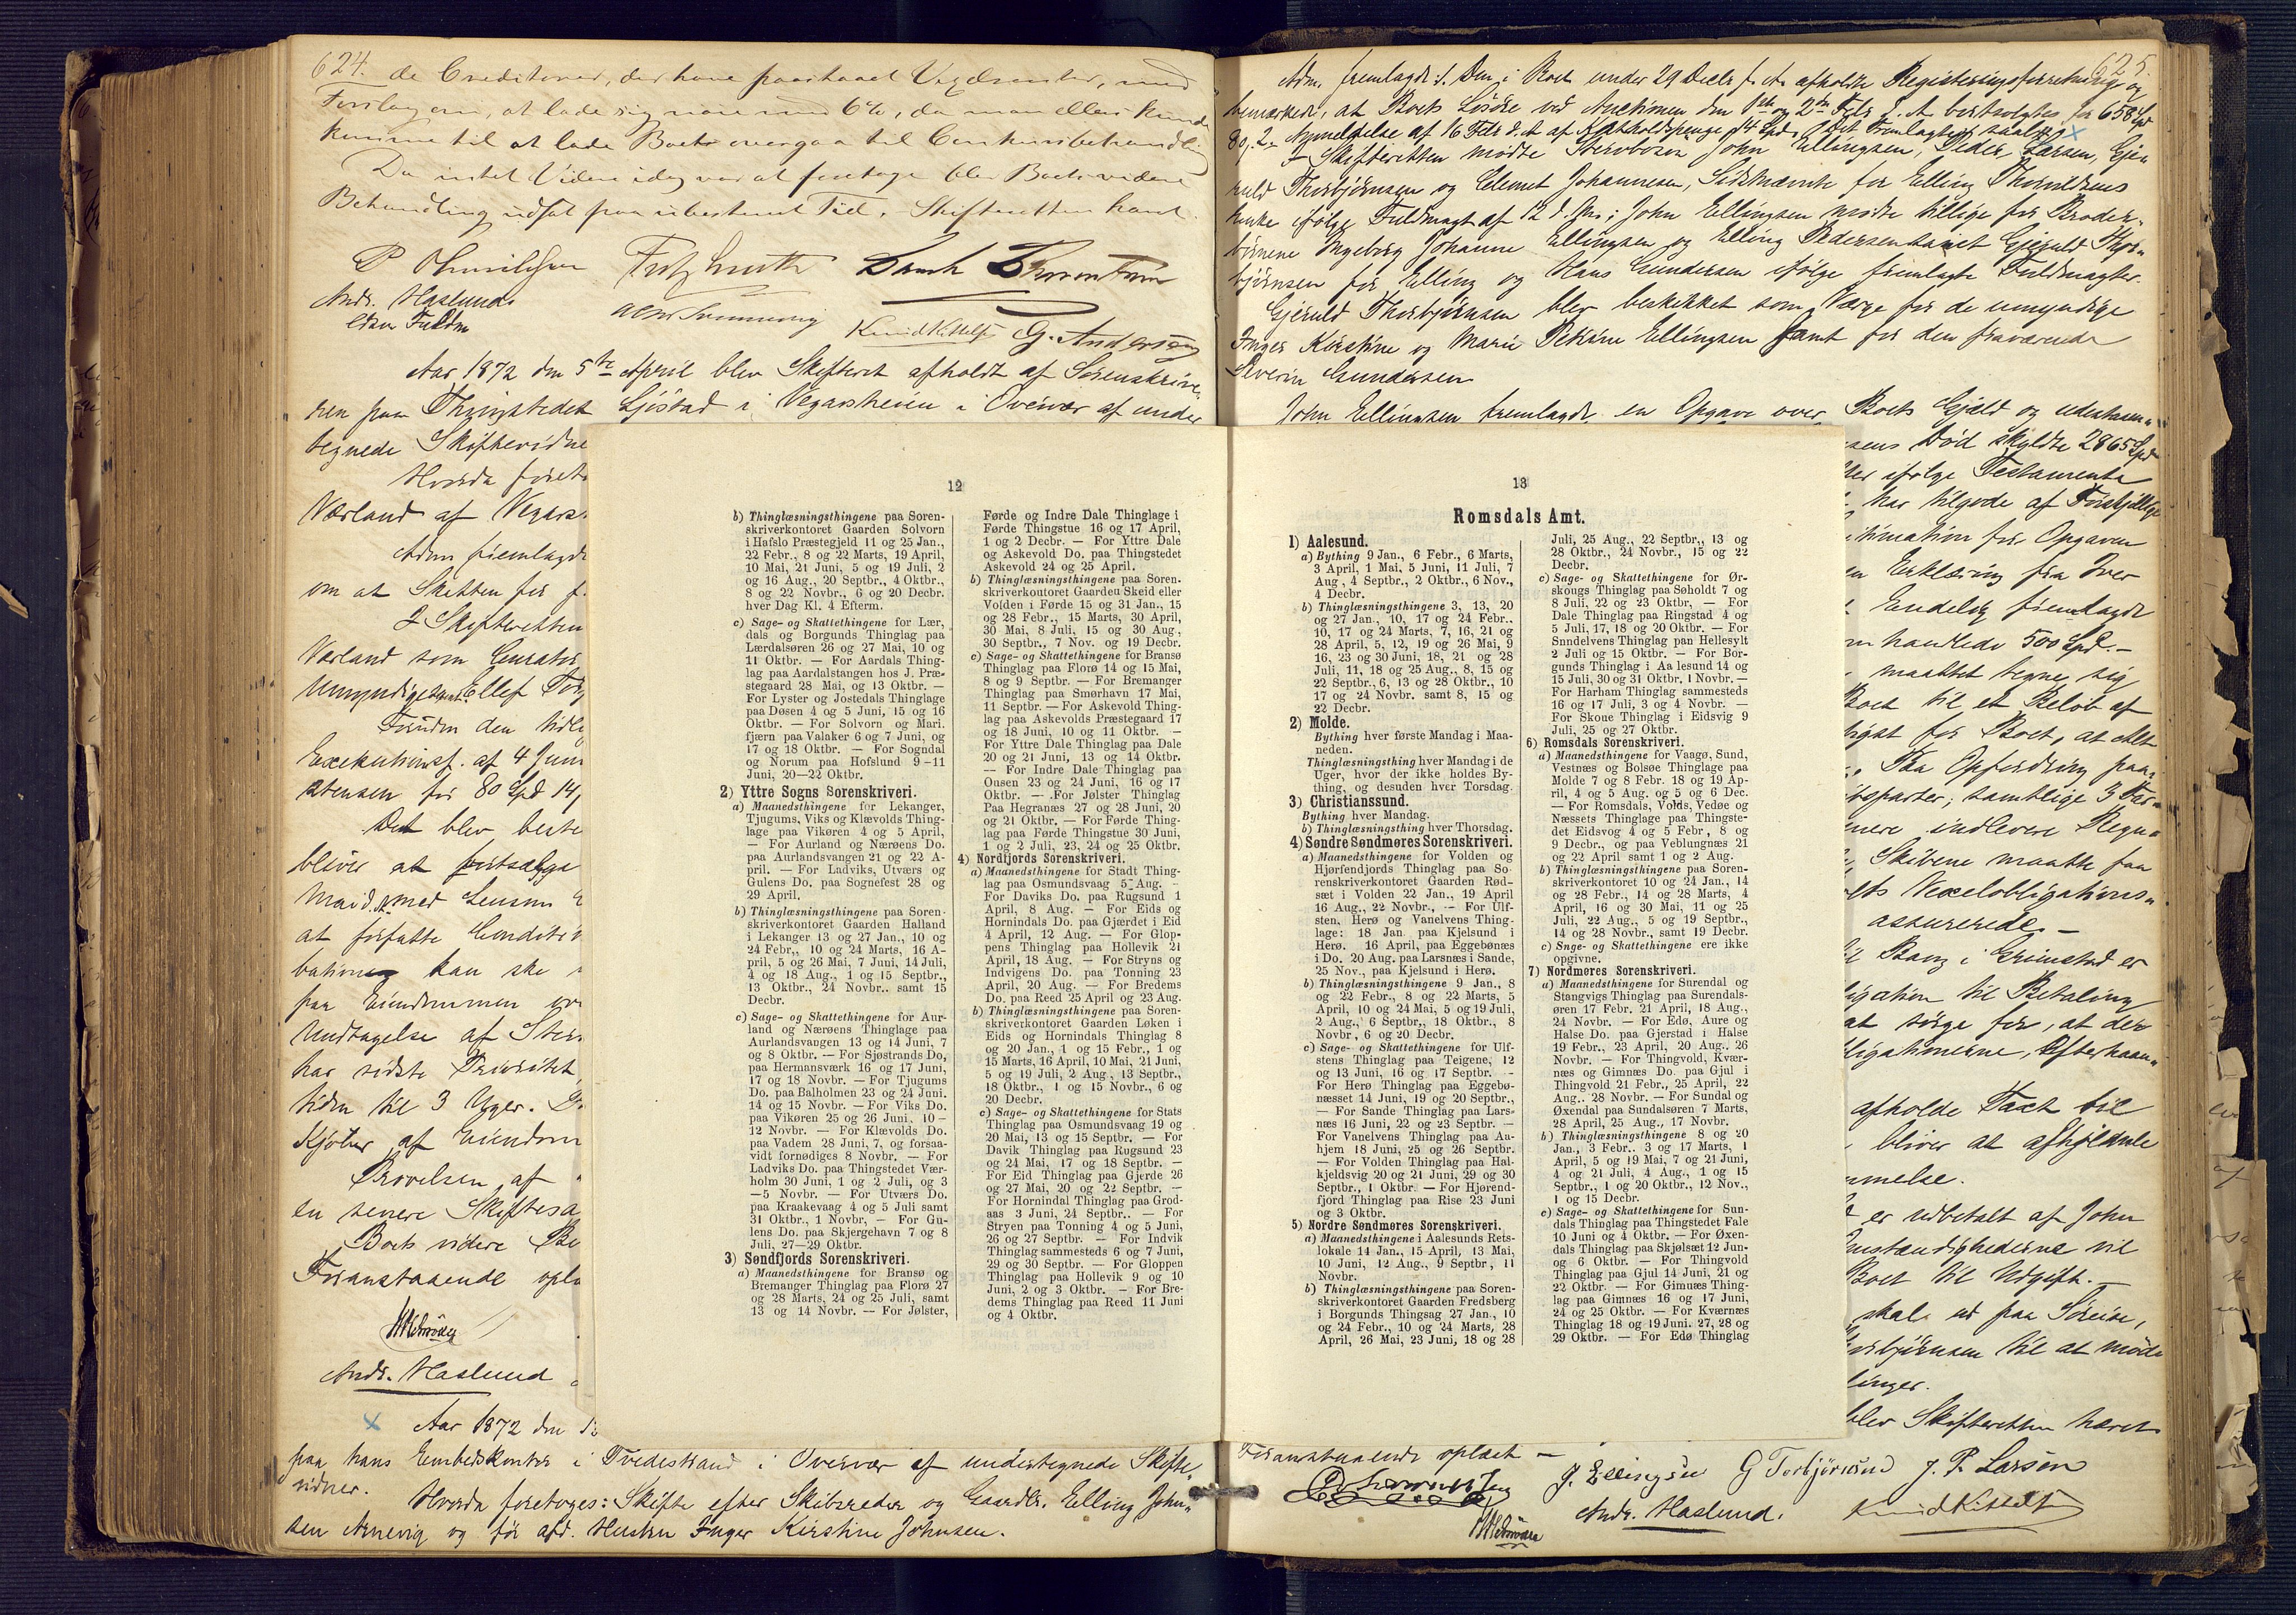 624.
de Creditorer, der have paastaaet
Forslag om, at lade sig nøie med 6%, da man ellers kunde
komme til at lade Boet overgaa til Concursbehandling
Da intet Videre idag var at foretage blev Boets videre
Behandling udsat paa ubestemt Tid. Skifteretten hævet.
Andr. Haslund
Knud Kittelsen G. Andersen
Aar 1872 den 5te April blev Skifteret afholdt af Sorenskrive-
ren paa Thingstedet Sjöstad i Vegarsheien i Overvær af under
tegnede Skiftevidne
Hvorda foret
Værland af Vegars
Adm fremlagde
om at Skatten for f.
I Skifteretten
Værland som Curator
Umyndige samt Ellef
Foruden den tidl
Executionsf. af 4 Juni
stensen for 80 Spd 14
Det blev beste
bliver at fortsælge
at forfatte Conditio
bationen kan ske
paa Eiendommen
Undtagelse af
har sidste Prioritet
tiden til 3 Uger.
Kjøber af Eiendom
Prøvelsen af
en senere Skiftesa
Boets videre Be
Foranstaaende opl
Andr. Haslund
x Aar 1872 den
paa hans Embedskontor i Tvedestrand i Overvær af undertegnede Skifte-
vidner.
Hvorda foretoges: Skifte efter Skibsreder og Gaardbr. Elling John-
sen Arnevig og før afd. Hustru Inger Kirstine Johnsen.
12
b) Thinglæsningsthingene paa Soren-
skriverkontoret Gaarden Solvorn
i Hafslo Præstegjeld 11 og 25 Jan.,
22 Febr., 8 og 22 Marts, 19 April,
10 Mai, 21 Juni, 5 og 19 Juli, 2
og 16 Aug., 20 Septbr., 4 Oktbr.,
8 og 22 Novbr., 6 og 20 Decbr.
hver Dag Kl. 4 Efterm.
c) Sage- og Skattethingene for Lær,
dals og Borgunds Thinglag paa
Lærdalsøren 26 og 27 Mai, 10 og
11 Oktbr. — For Aardals Thing-
lag paa Aardalstangen hos J. Præ-
stegaard 28 Mai, og 13 Oktbr. —
For Lyster og Jostedals Thinglage
paa Døsen 4 og 5 Juni, 15 og 16
Oktbr. — For Solvorn og Mari.
fjærn paa Valaker 6 og 7 Juni, og
17 og 18 Oktbr. — For Sogndal
og Norum paa Hofslund 9-11
Juni, 20—22 Oktbr.
2) Yttre Sogns Sorenskriveri.
a) Maanedsthingene for Lekanger,
Tjugums, Viks og Klævolds Thing-
lage paa Vikøren 4 og 5 April,
— For Aurland og Nærøens Do.
paa Aurlandsvangen 21 og 22 A-
pril. — For Ladviks, Utværs og
Gulens Do. paa Sognefest 28 og
29 April.
b) Thinglæsningsthingene paa Soren-
skriverkontoret Gaarden Halland
i Lekanger 13 og 27 Jan., 10 og
24 Febr., 10 og 24 Marts, 16 A-
pril, 5 og 26 Mai, 7 Juni, 14 Juli,
4 og 18 Aug., 1 og 15 Septbr.,
13 Oktbr., 24 Novbr.. samt 15
Decbr.
c) Sage- og Skattethingene for Aur-
land og Nærøens Thinglage paa
Aurlandsvangen 13 og 14 Juni, 7
og 8 Oktbr. — For Sjøstrands Do,
paa Hermansværk 16 og 17 Juni,
17 og 18 Novbr. — For Tjugums
Do. paa Balholmen 23 og 24 Juni.
14 og 15 Novbr. — For Viks Do.
paa Vikøren 25 og 26 Juni, 10-
12 Novbr. — For Klævolds Do.
paa Vadem 28 Juni, 7, og forsaa-
vidt fornødiges 8 Novbr. — For
Ladviks Do. paa Thingstedet Vær-
holm 30 Juni, 1 og 2 Juli, og 3
—5 Novbr. — For Utværs Do.
paa Kraakevaag 4 og 5 Juli samt
31 Oktbr., 1 Novbr, — For Gu-
lens Do. paa Skjergehavn 7 og 8
Juli, 27—29 Oktbr.
3) Søndfjords Sorenskriveri.
a) Maanedsthingene for Bransø og
Bremanger Thinglag paa Florø 27
og 28 Marts, 24 og 25 Juli, samt
13 og 14 Novbr. — For Jølster,
Førde og Indre Dale Thinglage i
Førde Thingstue 16 og 17 April,
1 og 2 Decbr. — For Yttre Dale
og Askevold Do. paa Thingstedet
Askevold 24 og 25 April.
b) Thinglæsningsthingene paa Soren-
skriverkontoret Gaarden Skeid eller
Volden i Førde 15 og 31 Jan., 15
og 28 Febr., 15 Marts, 30 April,
30 Mai, 8 Juli, 15 og 30 Aug,
30 Septbr., 7 Nov. og 19 Decbr.
c) Sage- og Skattethingene for Bransø
Thinglag paa Florø 14 og 15 Mai,
8 og 9 Septbr. — For Bremanger
Thinglag paa Smørhavn 17 Mai,
11 Septbr. — For Askevold Thing-
lag paa Askevolds Præstegaard 17
og 18 Juni, 10 og 11 Oktbr. —
For Yttre Dale Thinglag paa Dale
20 og 21 Juni, 13 og 14 Oktbr.
— For Indre Dale Thinglag paa
Onsen 23 og 24 Juni, 16 og 17
Oktbr. — For Jølster Thinglag
Paa Hegranæs 27 og 28 Juni, 20
og 21 Oktbr. — For Førde Thing-
lag paa Førde Thingstue 30 Juni,
1 og 2 Juli, 23, 24 og 25 Oktbr.
4) Nordfjords Sorenskriveri.
a) Maanedsthingene for Stadt Thing-
lag paa Osmundsvaag 5 Aug. —
For Daviks Do. paa Rugsund 1
April, 8 Aug. — For Eids og
Hornindals Do. paa Gjærdet i Eid
4 April, 12 Aug. — For Glop-
pens Thinglag paa Hollevik 21
April, 18 Aug. — For Stryns og
Indvigens Do. paa Tonning 23
April, 20 Aug. — For Bredems
Do. paa Reed 25 April og 23 Aug.
b) Thinglæsningsthingene paa Soren-
skriverkontoret Gaarden Løken i
Eids og Hornindals Thinglag 8
og 20 Jan., 1 og 15 Febr., 1 og
15 Marts, 16 April, 10 Mai, 21 Juni,
5 og 19 Juli, 2 Aug., 13 Septbr.,
18 Oktbr., 1 og 15 Novbr., 6 og
20 Decbr.
c) Sage- og Skattethingene for Stats
Thinglag paa Osmundsvaag 19 og
20 Mai, 13 og 15 Septbr. — For
Davik Thinglag paa Rugsund 23
og 24 Mai, 17 og 18 Septbr. —
For Eid Thinglag paa Gjerde 26
og 27 Mai, 20 og 22 Septbr. —
For Hornindal Thinglag paa Grod-
aas 3 Juni, 24 Septbr.. — For
Stryen paa Tonning 4 og 5 Juni,
26 og 27 Septbr. — For Indvik
Thinglag sammesteds 6 og 7 Juni,
29 og 30 Septbr. — For Gloppen
Thinglag paa Hollevik 9 og 10
Juni, 2 og 3 Oktbr. — For Bre-
dems Thinglag paa Reed 11 Juni
og 4 Oktbr.
625.
Adm. fremlagde: 1. Den i Boet under 29 Decbr f. A. afholdte Registreringsforretning og
bemærkede, at Boets Løsøre ved Auctionen den 1ste og 2den Febr d. A. bortsolgtes for 658 Spd
I Skifteretten mødte Sterboson John Ellingsen, Peder Larsen, Gje-
ruld Thorbjørnsen og Clemet Johannesen, Sidstnævnte for Elling
Enke ifølge Fuldmagt af 12 d. Ms; John Ellingsen mødte tillige for Broder-
børnene Ingeborg Johanne Ellingsen og Elling Pedersen samt Gjeruld Thor-
bjørnsen for Elling og Hans Gundersen ifølge fremlagte Fuldmagter.
Gjeruld Thorbjørnsen blev beskikket som Værge for de umyndige
Inger Kirstine og Marie Petrine Ellingsen samt for den fraværende
Severin Gundersen
John Ellingsen fremlagde en Opgave over Boets Gjæld og udestaaen-
sens Død skyldte 2865 Spd
ifølge Testamente
har tilgode af Forskjellige
timation for Opgaven
en Erklæring fra Over
Endelig fremlagde
om handlede 500 Spd. —
maattet tegne sig
Boet til et Beløb af
ligst for Boet, at Alt
Paa Opfordring paa-
ibsparter; samtlige 3 Far-
nere indlevere Regn-
Skibene maatte faa
lts Vexelobligations-
assurerede. —
til Bang i Grimstad er
ligation til Betaling
at sørge for, at der
ligationerne, Efterhaan-
afholde Taxt til
bliver at afhjemle
mmelse.
er udbetalt af John
Omstændighederne vil
Boet til Udgift. —
skal ud paa Søreise,
Thorbjørnsen til at møde
linger.
blev Skifteretten hævet
13
Romsdals Amt.
1) Aalesund.
a) Bything 9 Jan., 6 Febr., 6 Marts,
3 April, 1 Mai, 5 Juni, 11 Juli, 7
Aug, 4 Septbr., 2 Oktbr., 6 Nov.,
4 Decbr.
b) Thinglæsningsthingene 3, 13, 20
og 27 Jan., 10, 17 og 24 Febr..
10, 17 og 24 Marts, 7, 16, 21 og
28 April, 5, 12, 19 og 26 Mai, 9
16, 23 og 30 Juni, 18, 21 og 28
Juli, 11, 18 og 25 Aug., 8, 15 og
22 Septbr., 6, 13 og 28 Oktbr., 10
17 og 24 Novbr. samt 8, 15 og
22 Decbr.
2) Molde.
Bything hver første Mandag i Maa-
neden.
Thinglæsningsthing hver Mandag i de
Uger, hvor der ikke holdes By-
thing, og desuden hver Torsdag.
3) Christianssund.
Bything hver Mandag.
b) Thinglæsningsthing hver Thorsdag.
4) Søndre Søndmøres Sorenskriveri.
a) Maanedsthingene for Volden og
Hjørfendjords Thinglag paa So-
renskriverkontoret Gaarden Rød-
sæt i Volden 22 Jan., 19 April
16 Aug., 22 Novbr., — For Ulf-
sten, Herø og Vanelvens Thing-
lage: 18 Jan. paa Kjelsund i
Herø. 16 April, paa Eggebønæs
i Do. 20 Aug. paa Larsnæs i Sande,
25 Nov., paa Kjelsund i Herø.
b) Thinglæsningsthingene 9 Jan., 8
og 22 Febr., 8 og 22 Marts, 5
April, 10 og 24 Mai, 5 og 19 Juli,
2 Aug., 6 Septbr., 18 Oktbr., 8
Novbr, 6 og 20 Decbr.
c) Sage- og Skattethingene for Ulf-
stens Thinglag paa Teigene, 12
og 13 Juni, 16 og 17 Septbr. —
For Herø Thinglag paa Eggebø-
næsset 14 Juni, 19 og 20 Septbr.,
— For Sande Thinglag paa Lars-
næs 16 Juni, 22 og 23 Septbr. —
For Vanelvens Thinglag paa Au-
hjem 18 Juni, 25 og 26 Septbr.
— For Volden Thinglag paa Hal-
kjeldsvig 20 og 21 Juni, 29 og 30
Septbr., 1 Oktbr. — For Hjørend-
fjord Thinglag paa Rise 23 Juni
og 3 Oktbr.
5) Nordre Søndmøres Sorenskriveri.
a) Maanedsthingene i Aalesunds Rets-
lokale 14 Jan., 15 April, 13 Mai,
10 Juni, 12 Aug., 9 Septbr, 11
Novbr.
b) Thinglæsningsthingene paa Soren-
skriverkontoret Gaarden Fredsberg
i Borgunds Thingsag 27 Jan., 10
og 24 Febr., 10 og 24 Marts, 28
April, 26 Mai, 23 Juni, 18 og 28
Juli, 25 Aug., 22 Septbr., 13 og
28 Oktbr., 24 Novbr., 15 og 22
Decbr.
c) Sage- og Skattethingene for Ør-
skougs Thinglag paa Søholdt 7 og
8 Juli, 22 og 23 Oktbr, — For
Dale Thinglag paa Ringstad 4 og
5 Juli, 17, 18 og 20 Oktbr. — For
Snndelvens Thinglag paa Hellesylt
2 Juli og 15 Oktbr. — For Bor-
gunds Thinglag i Aalesund 14 og
15 Juli, 30 og 31 Oktbr, 1 Novbr. —
For Harham Thinglag sammesteds
16 og 17 Juli, 3 og 4 Novbr. —
For Skoue Thinglag i Eidsvig 9
Juli, 25 og 27 Oktbr.
6) Romsdals Sorenskriveri.
a) Maanedsthingene for Vaagø, Sund,
Vestnæs og Bolsøe Thinglage paa
Molde 7 og 8 Febr. 18 og 19 Ap-
ril, 4 og 5 Aug. og 5 og 6 Dec.
— For Romsdals, Volds, Vedøe og
Næssets Thinglage paa Thingste-
det Eidsvog 4 og 5 Febr, 8 og
9 Decbr., og paa Veblungnæs 21
og 22 April samt 1 og 2 Aug.
b) Thinglæsningsthingene paa Soren-
skriverkontoret 10 og 24 Jan., 14
og 28 Febr., 14 og 28 Marts, 4
April, 16 og 30 Mai, 11 og 25
Juli, 22 Aug., 5 og 19 Septbr.,
14 og 28 Novbr., samt 19 Decbr.
c) Snge- og Skattethingene ere ikke
opgivne.
7) Nordmøres Sorenskriveri.
a) Maanedsthingene for Surendal og
Stangvigs Thinglag paa Surendals-
øren 17 Febr. 21 April, 18 Aug.,
24 Novbr. — For Edø, Aure og
Halse Do. paa Gjerstad i Halse
19 Febr., 23 April, 20 Aug.. 26
Novbr. — For Thingvold, Kvær-
næs og Gimnæs Do. paa Gjul i
Thingvold 21 Febr., 25 April, 22
Aug.. 28 Novbr. — For Sundal og
Øxendal paa Sundalsøren 7 Marts,
28 April, 25 Aug., 17 Novbr.
b) Thinglæsningsthingene 8 og 20
Jan., 3 Febr.. 3 og 17 Marts, 1
April, 5 og 19 Mai, 7 og 21 Juni,
4 og 21 Juli, 4 Aug., 1 og 15
Septbr., 1 og 20 Oktbr., 12 Nov.,
1 og 15 Decbr.
c) Sage- og Skattethingene for Sun-
dals Thinglag paa Thingstedet Fale
10 Juni og 4 Oktbr. — For Øxen-
dals Thinglag paa Skjølsæt 12 Jun-
og 6 Oktbr. — For Thingvold
Thinglag paa Gjul 14 Juni, 21 og
22 Oktbr. — For Gimnæs Thing-
lag paa Gimnæs 16 og 17 Juni,
24 og 25 Oktbr. — For Kværnæs
Thinglag 18 og 19 Juni. 27, 28 og
29 Oktbr. — For Edø Thinglag
Foranstaaende oplæst —
J. Ellingsen G Torbjørnsen J. P. Larsen
Andr. Haslund. Knud Kittelsen